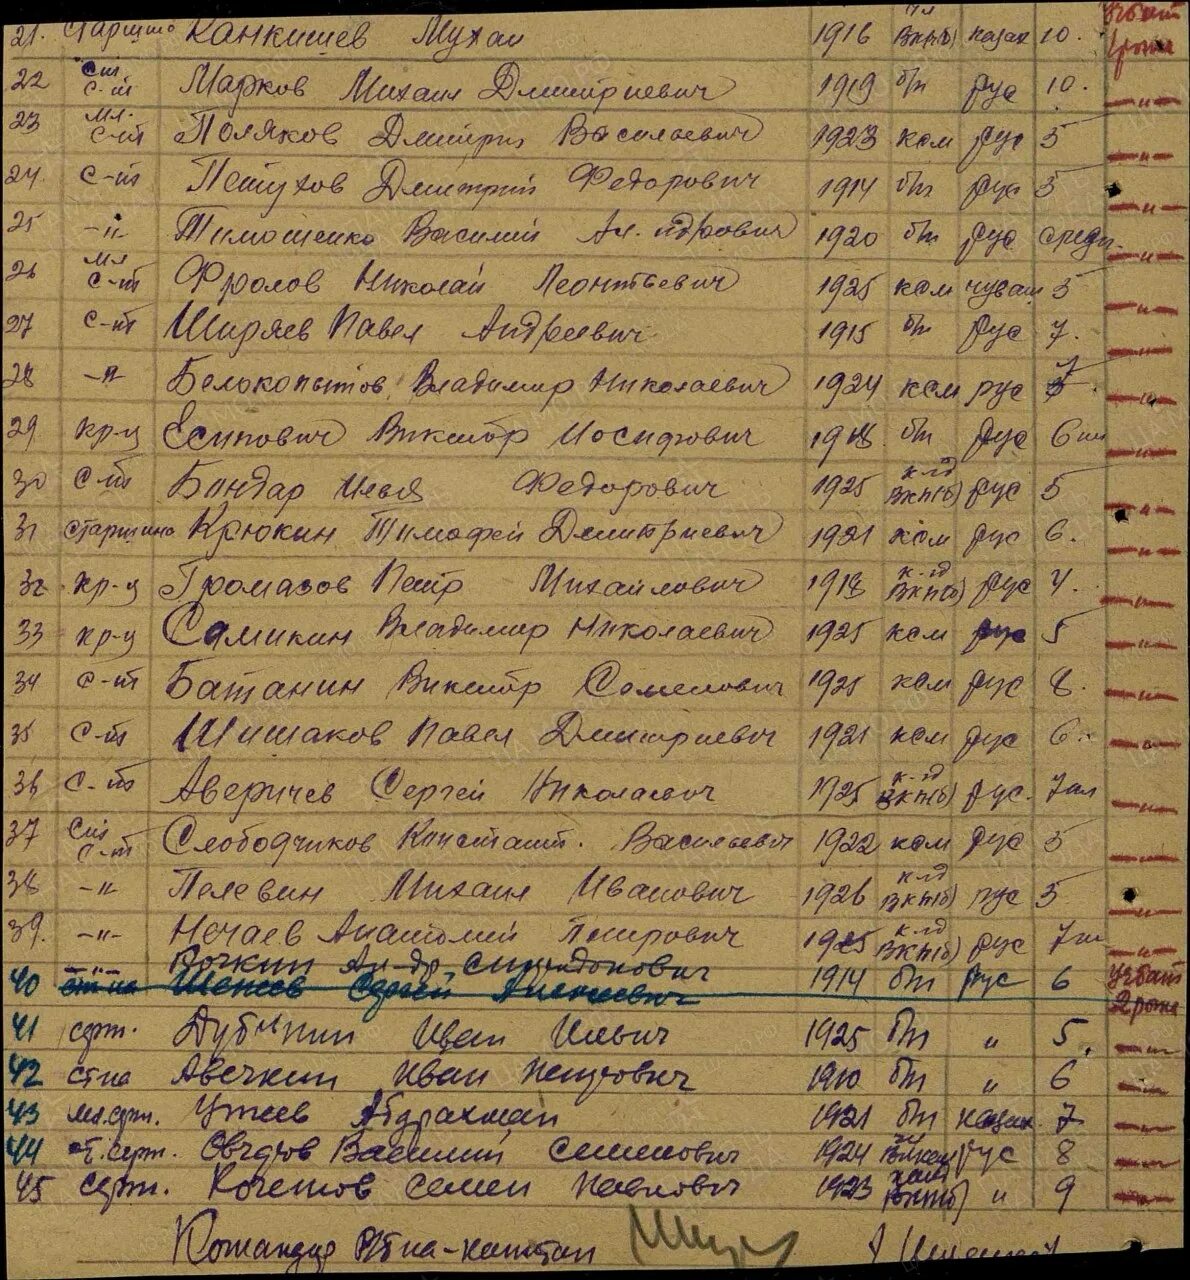 21. старшина Канкишев Мухан 1916 чл ВКП(б) казах 10. Учбат 1 рота
22 ст с-нт Марков Михаил Дмитриевич 1919 б/п рус 10. —"—
23 мл. с-нт Поляков Дмитрий Васильевич 1923 ксм рус 5 —"—
24. с-нт Петухов Дмитрий Федорович 1914 б/п рус 5 —"—
25 —"— Тимошенко Василий 1920 б/п рус средн. —"—
26 мл с-нт Фролов Николай Леонтьевич 1925 ксм чуваш 5 —"—
27 с-нт Ширяев Павел Андреевич 1915 б/п рус 7. —"—
28 —"— Белокопытов Владимир Николаевич 1924 ксм рус 7 —"—
29. кр-ц Есипович Виктор Иосифович 1918 б/п рус 6 —"—
30 с-нт Бондар Илья Федорович 1925 к-нд ВКП(б) рус 5 —"—
31 старшина Крюкин Тимофей Дмитриевич 1921 ксм рус 6. —"—
32 кр-ц Громазов Петр Михайлович 1918 к-нд ВКП(б) рус 4. —"—
33 кр-ц Самикин Владимир Николаевич 1925 ксм рус 5 —"—
34 с-нт Батанин Виктор Семенович 1921 ксм рус 8. —"—
35 с-нт Шишаков Павел Дмитриевич 1921 ксм рус 6. —"—
36 с-нт Аверичев Сергей Николаевич 1925 к-нд ВКП(б) рус. 7 —"—
37 ст с-нт Слободчиков Констант. Васильевич 1922 ксм рус 5 —"—
38 —"— Пелевин Михаил Иванович 1926 к-нд ВКП(б) рус 5 —"—
39. —"— Нечаев Анатолий 1925 к-нд ВКП(б) рус 7 —"—
—"— Вочкин Ал-др
40 ст-на Сергей Алексеевич 1914 б/п рус 6 Учбат 2 рота
41 серж. Дубинин Иван Ильич 1925 б/п " 5. —"—
42 ст-на Авечкин Иван Петрович 1910 б/п " 6 —"—
43 мл.серж. Утиев Абдрахман 1921 б/п казах. 7 —"—
44 ст.серж. Василий Семенович 1924 рус 8 —"—
45 серж. Кочетов Семен Павлович 1923 " 9 —"—
Командир б-на - капитан